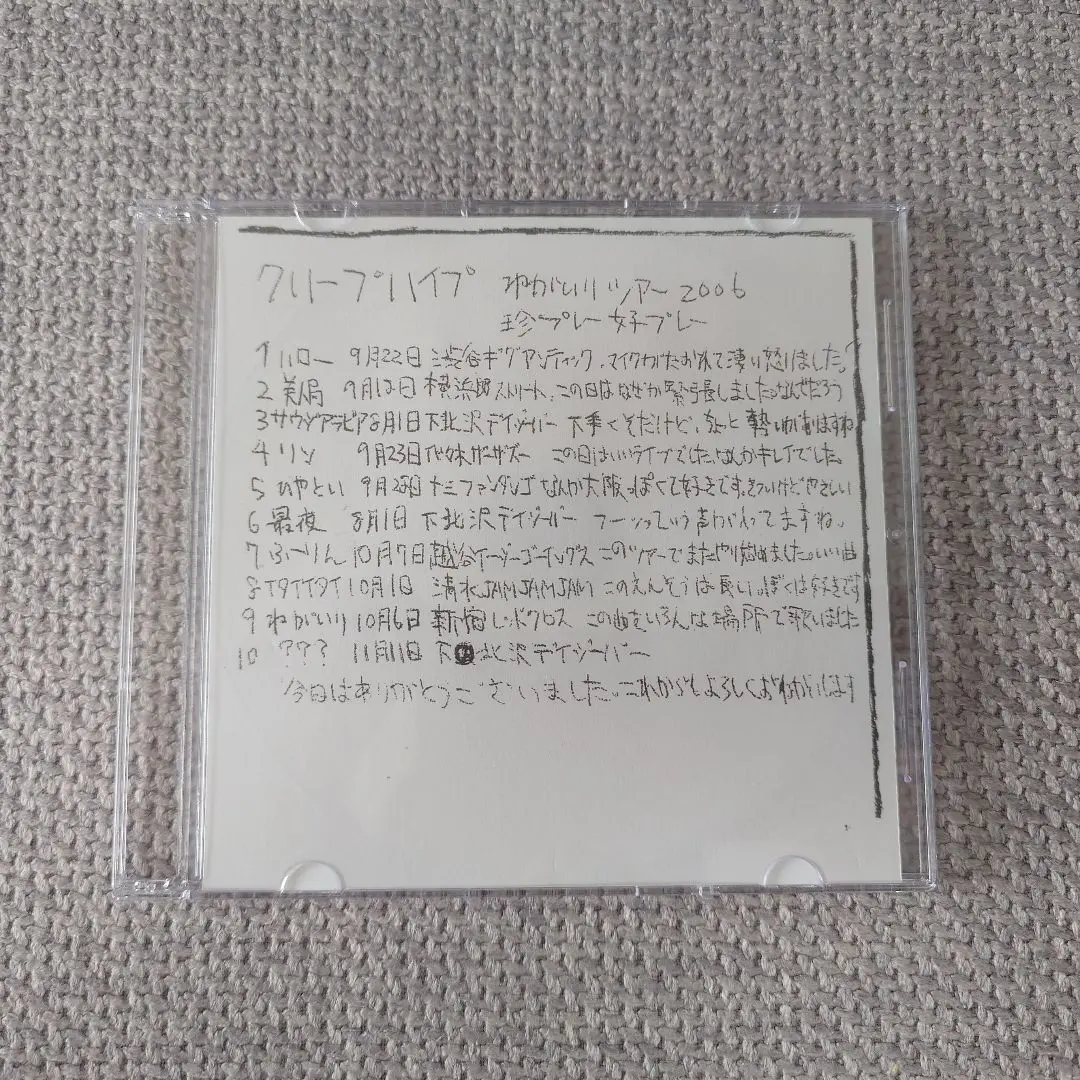 クリープハイプ わがいりツアー2006
珍プレー好プレー
1 ハロー 9月22日 渋谷ギグアンティック、マイクがたおれて凄い怒りました。
2 美人局 9月12日 横浜 ストリート、この日はなぜか緊張しましたなんでだろう
3 サウジアラビア 8月1日 下北沢デイジーバー 下手くそだけど、ちょっと勢いがありますね
4 リンリン 9月23日 この日はいいライブでした。なんかキレイでした。
5 ひやとい 9月25日 ナミファンダンゴ なんか大阪っぽくて好きです。きついけどやさしい
6 最夜 8月1日 下北沢デイジーバー フーッっていう声がはいってますね。
7 ふーりん 10月7日 越谷イージーゴーイングス このツアーでまたやり始めました。いい曲
8 イタイイタイ 10月1日 清水JAMJAMJAM このえんそうは長い。ぼくは好きです
9 わがいり 10月6日 新宿レッドクロス この曲をいろんな場所で歌いました
10 ??? 11月11日 下北沢デイジーバー
今日はありがとうございました。これからもよろしくおねがいします